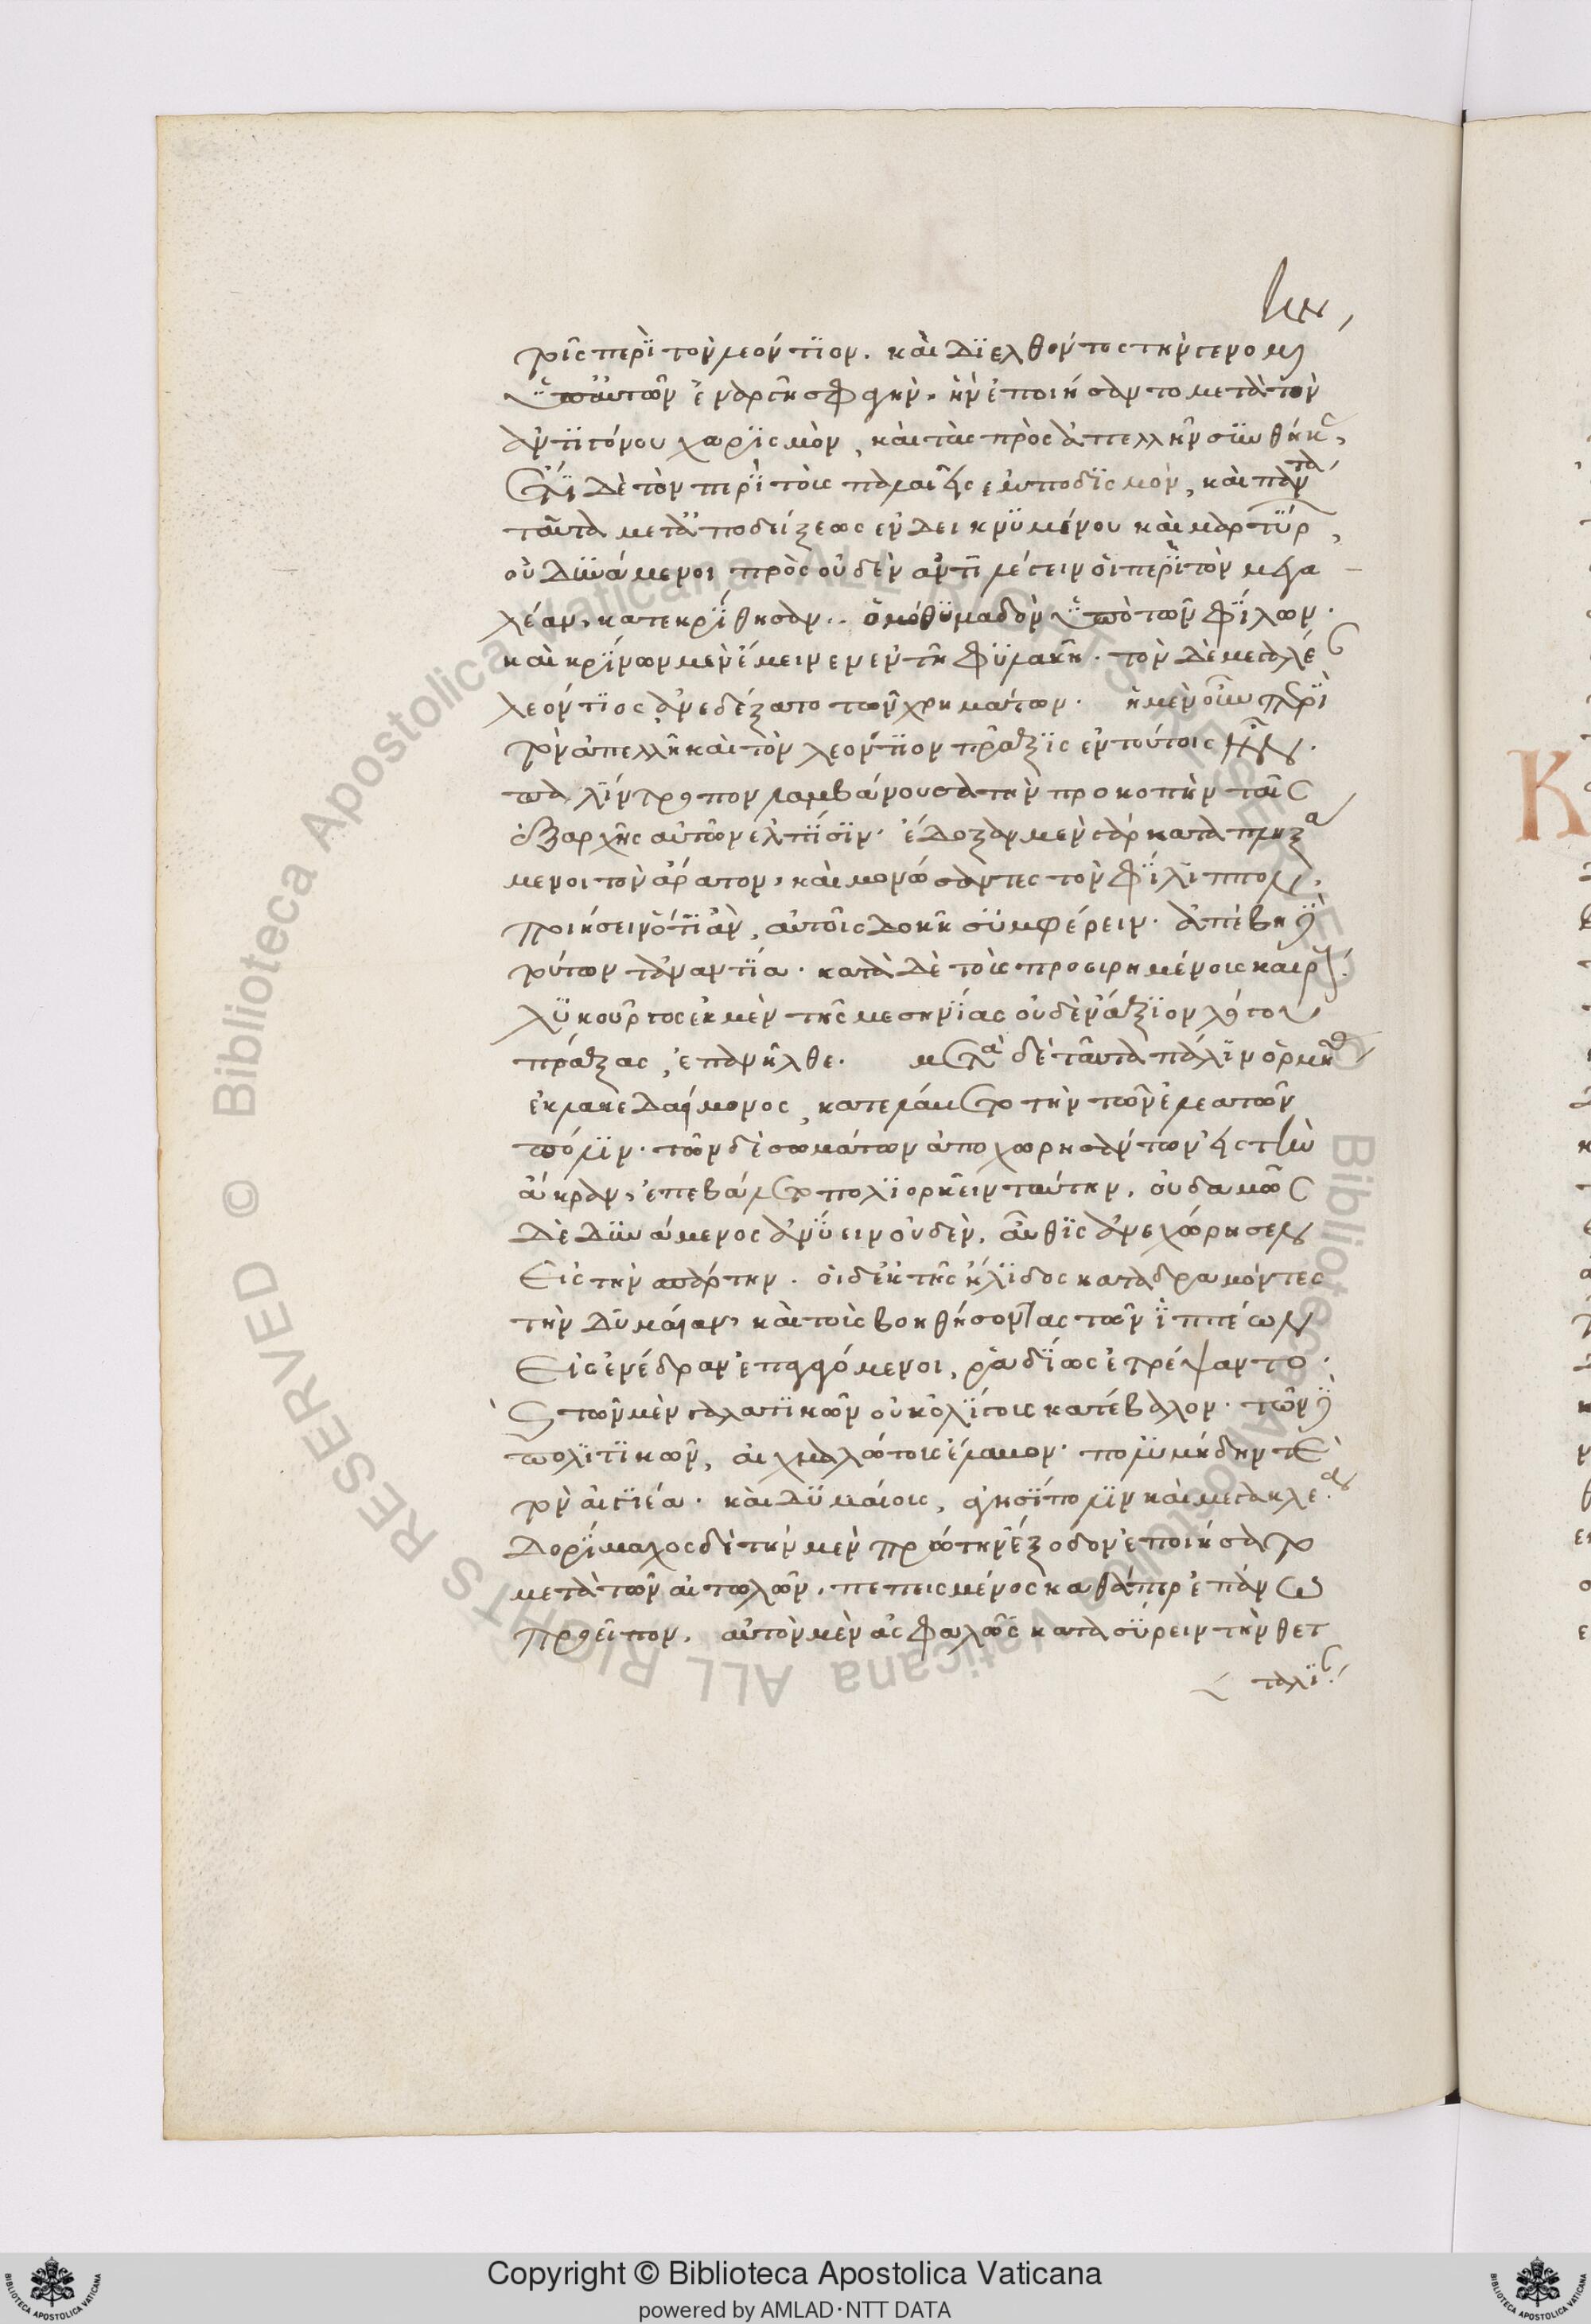 τοῖς περὶ τὸν λεόντιον. καὶ διελθόντος τὴν γενομένην
ὑπ' αὐτῶν ἐν ἄργει σφαγὴν, ἣν ἐποιήσαντο μετὰ τὸν
ἀντιγόνου χωρισμὸν, καὶ τὰς πρὸς ἀπελλῆν συνθήκας,
ἔτι δὲ τὸν περὶ τοὺς παλαιεῖς ἐμποδισμὸν, καὶ πάντα
ταῦτα μετὰ ἀποδείξεως ἐνδεικνυμένου καὶ μαρτύρων,
οὐ δυνάμενοι πρὸς οὐδὲν ἀντιλέγειν οἱ περὶ τὸν μεγα
λέαν, κατεκρίθησαν.. ὁμοθυμαδὸν ὑπὸ τῶν φίλων.
καὶ κρίνων μὲν ἔμεινεν ἐν τῆ φυλακῆ. τὸν δὲ μεγαλέαν
λεόντιος ἀνεδέξατο τῶν χρημάτων. ἡ μὲν οὖν περὶ
τὸν ἀπελλῆ καὶ τὸν λεόντιον πρᾶξις ἐν τούτοις ἦν.
παλίντροπον λαμβάνουσα τὴν προκοπὴν ταῖς
ἐξαρχῆς αὐτῶν ἐλπίσιν. ἔδοξαν μὲν γὰρ καταπληξά
μενοι τὸν ἄρατον, καὶ μονώσαντες τὸν φίλιππον,
ποιήσειν ὅτι ἂν, αὐτοῖς δοκῆ συμφέρειν. ἀπέβη δὲ
τούτων τἀναντία. κατὰ δὲ τοὺς προειρημένους καιροὺς.
λυκοῦργος ἐκ μὲν τῆς μεσηνίας οὐδὲν ἄξιον λόγου
πράξας, ἐπανῆλθε. μετὰ δὲ ταῦτα πάλιν ὁρμηθεὶς
ἐκ λακεδαίμονος, κατελάμβετο τὴν τῶν ἠλεατῶν
πόλιν. τῶν δὲ σωμάτων ἀποχωρησάντων εἰς τὴν
ἄκραν, ἐπεβάλετο πολιορκεῖν ταύτην. οὐδαμῶς
δὲ δυνάμενος ἀνύειν οὐδὲν, αὖθις ἀνεχώρησεν
εἰς τὴν σπάρτην. οἱ δ' ἐκ τῆς ἤλιδος καταδραμόντες
τὴν δυμαίαν, καὶ τοὺς βοηθήσοντας τῶν ἱππέων
εἰς ἐνέδραν ἐπαγαγόμενοι, ῥαδίως ἐτρέψαντο.
καὶ τῶν μὲν γαλατικῶν οὐκ ὀλίγους κατέβαλον. τῶν δὲ
πολιτικῶν, αἰχμαλώτους ἔλαβον. πολυμήδην τὲ
τὸν αἰγιέα. καὶ δυμαίους, ἀγησίπολιν καὶ μεγακλέα.
δορίμαχος δὲ τὴν μὲν πρώτην ἔξοδον ἐποιήσατο
μετὰ τῶν αἰτωλῶν, πεπεισμένος καθάπερ ἐπάνω
προεῖπον, αὐτὸν μὲν ἀσφαλῶς κατασύρειν τὴν θετ
ταλίαν.
Biblioteca Apostolica Vaticana ALL RIGHTS RESERVED ©
Copyright © Biblioteca Apostolica Vaticana
powered by AMLAD·NTT DATA